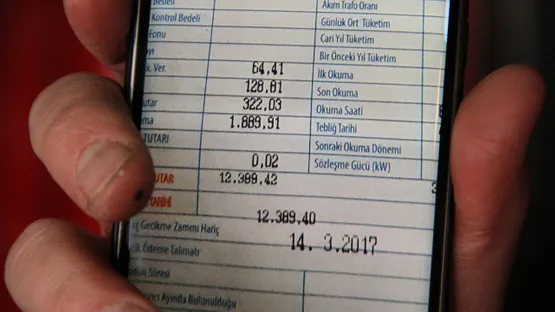 Bedeli
Akım Trafo Oranı
Kontrol Bedeli
Günlük Ort Tüketim
Fonu
Cari Yıl Tüketim
Bir Önceki Yıl Tüketim
Ver. 64,41 İlk Okuma
128,81 Son Okuma
322,03 Okuma Saati
1.889,91 Tebliğ Tarihi
TUTARI Sonraki Okuma Dönemi
0,02 Sözleşme Gücü (kW)
12.389,42
12.389,40
Gecikme Zammı Hariç
14. 3.2017
Ödeme Talimatı
Süresi
Ayında Bulunulduğu